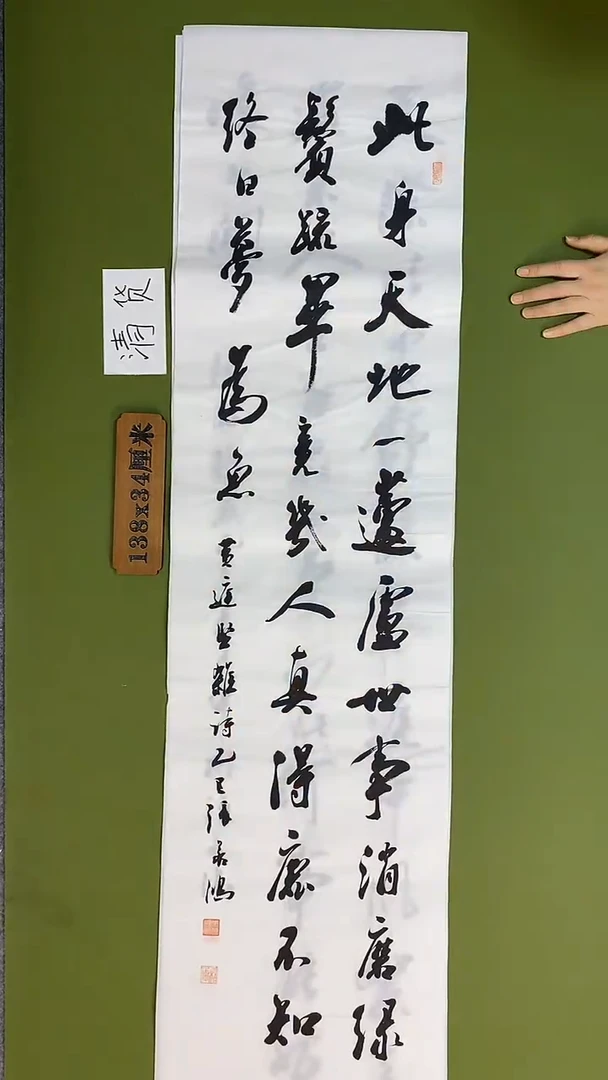 此身天地一蘧廬世事消磨綠
鬢疏畢竟幾人真得鹿不知
終日夢為魚
黃庭堅雜詩乙巳張
清货
138x34厘米